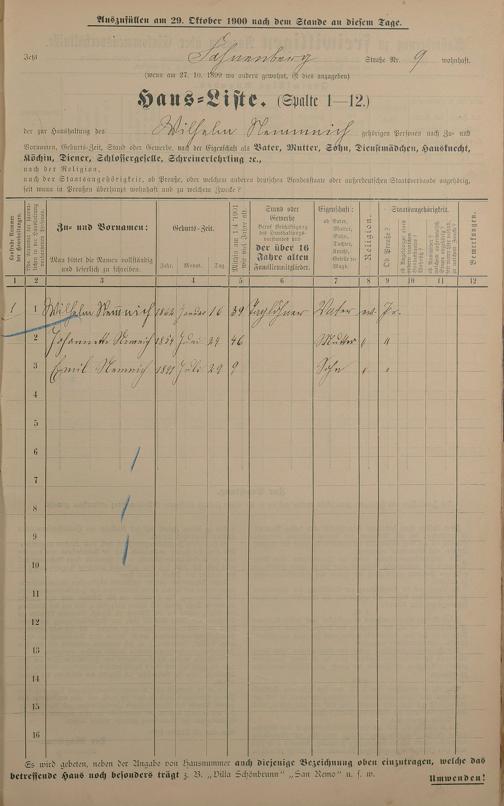 Auszufüllen am 29. Oktober 1900 nach dem Stande an diesem Tage.
Jetzt Straße Nr. 9 wohnhaft.
(wenn am 27. 10. 1899 wo anders gewohnt, ist dies anzugeben)
Haus-Liste. (Spalte 1—12.)
der zur Haushaltung des Wilhelm Nemnich gehörigen Personen nach Zu- und
Vornamen, Geburts-Zeit, Stand oder Gewerbe, nach der Eigenschaft als Vater, Mutter, Sohn, Dienstmädchen, Hausknecht,
Köchin, Diener, Schlossergeselle, Schreinerlehrling ec.,
nach der Religion,
nach der Staatsangehörigkeit, ob Preuße, oder welchem anderen deutschen Bundesstaate oder außerdeutschen Staatsverbande angehörig,
seit wann in Preußen überhaupt wohnhaft und zu welchem Zwecke?
Laufende Nummer der Haushaltungen.
Zu- und Vornamen:
Man bittet die Namen vollständig und leserlich zu schreiben.
Geburts-Zeit.
Jahr. Monat. Tag.
Mithin am 1.4.1901 wie viel Jahre alt.
Stand oder Gewerbe
der über 16 Jahre alten Familienmitglieder.
Eigenschaft:
ob Vater, Mutter, Sohn, Tochter, Knecht, Geselle zc. Magd.
Religion.
Staatsangehörigkeit.
Ob Preuße?
Bemerkungen.
1 2 3 4 5 6 7 8 9 10 11 12
1 1 Wilhelm Nemnich 1862 Januar 16 39 Taglöhner Vater ev. Pr.
2 Johannette Nemnich 1854 Juni 29 46 Mutter " "
3 Emil Nemnich 1891 Juli 29 9 Sohn " "
4
5
6
7
8
9
10
11
12
13
14
15
16
Es wird gebeten, neben der Angabe von Hausnummer auch diejenige Bezeichnung oben einzutragen, welche das
betreffende Haus noch besonders trägt z. B. „Villa Schönbrunn" „San Remo" u. s. w. Umwenden!